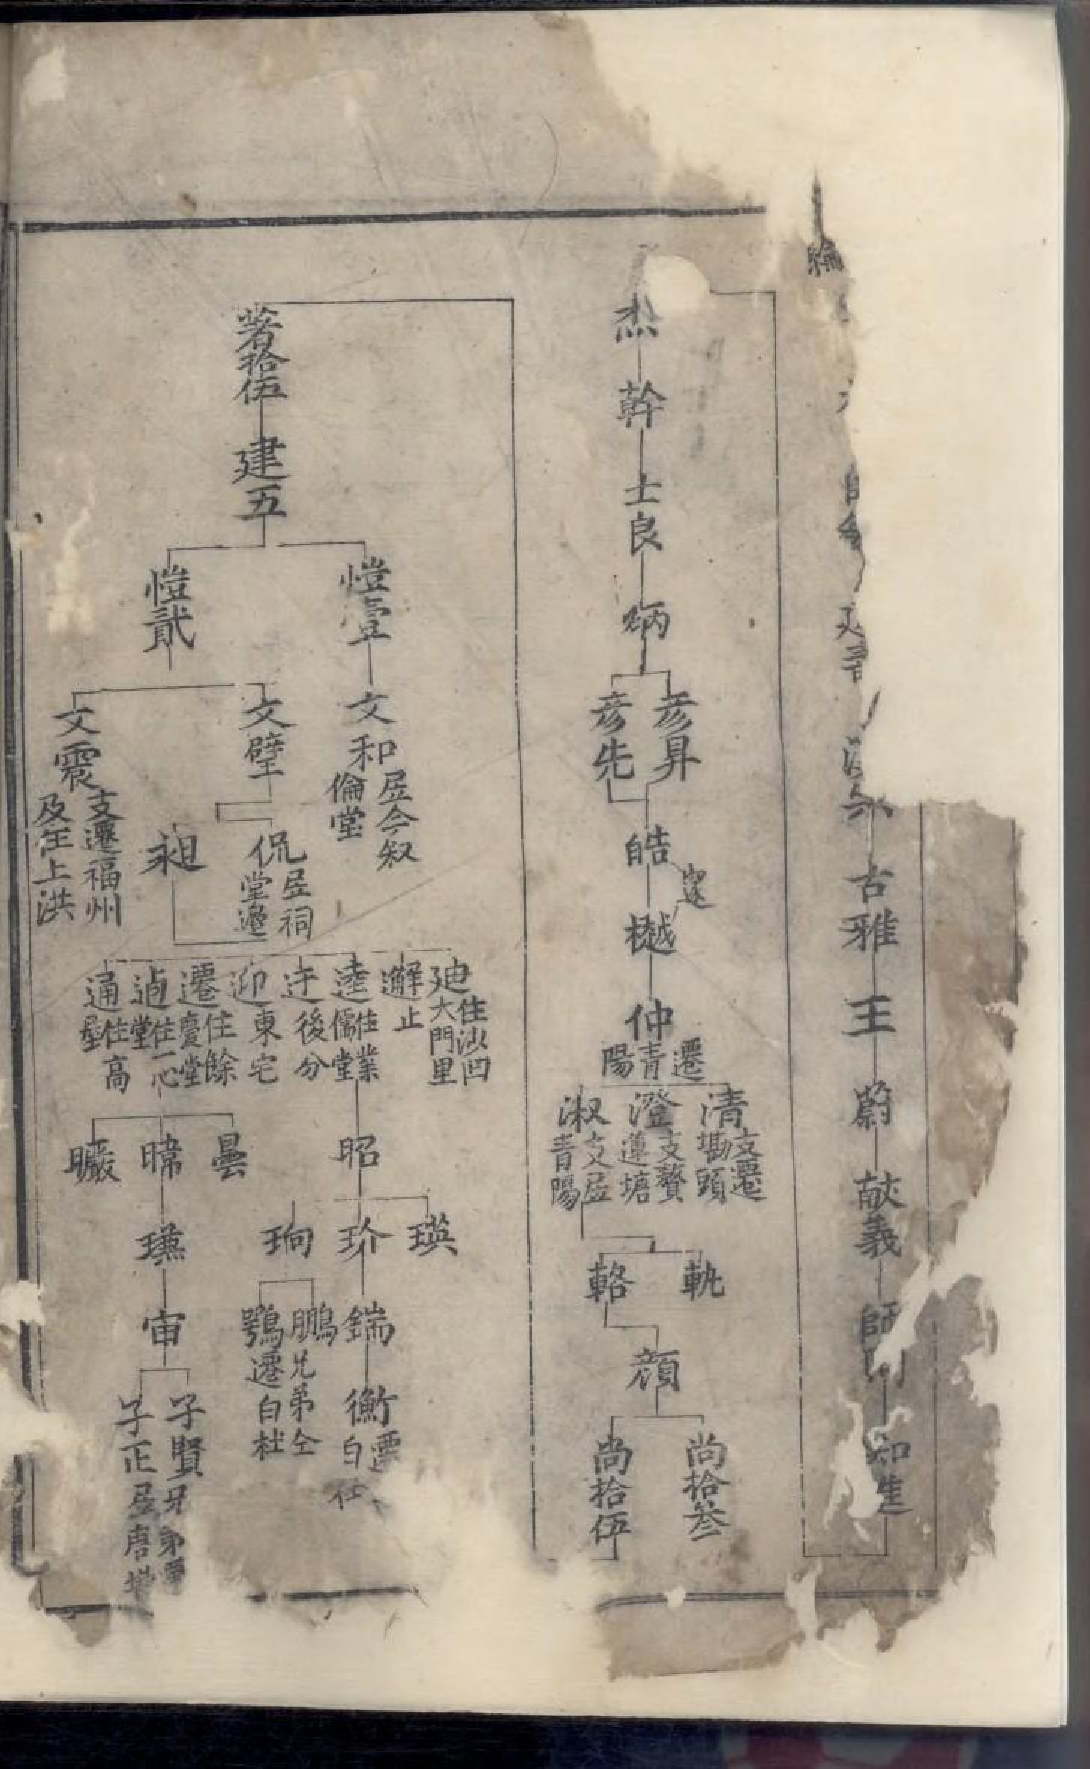 古雅
王
蔚
献義
師
知進
杰
幹
士良
炳
彦昇
彦先
皓
寔
樾
仲
遷青陽
清
支遷
塸頭
澄
支贅
蓮塘
淑
支居
青陽
軏
輅
顔
尚拾叁
尚拾伍
著拾伍
建五
愷壹
愷貳
文和
居今叙
倫堂
文璧
文震
支遷福州
及在上洪
侃
居祠
堂邊
昶
廸
住沙凹
大門里
邂
止
逵
住業
儒堂
迂
後分
迎
東宅
遷
住餘
慶堂
逌
住一心
堂
通
住高
屋
昭
曇
暐
曮
瑛
玠
珦
璑
鍴
鵬
鶚
兄弟仝
遷白杜
衡
遷
白
宙
子賢
子正
兄弟
居唐